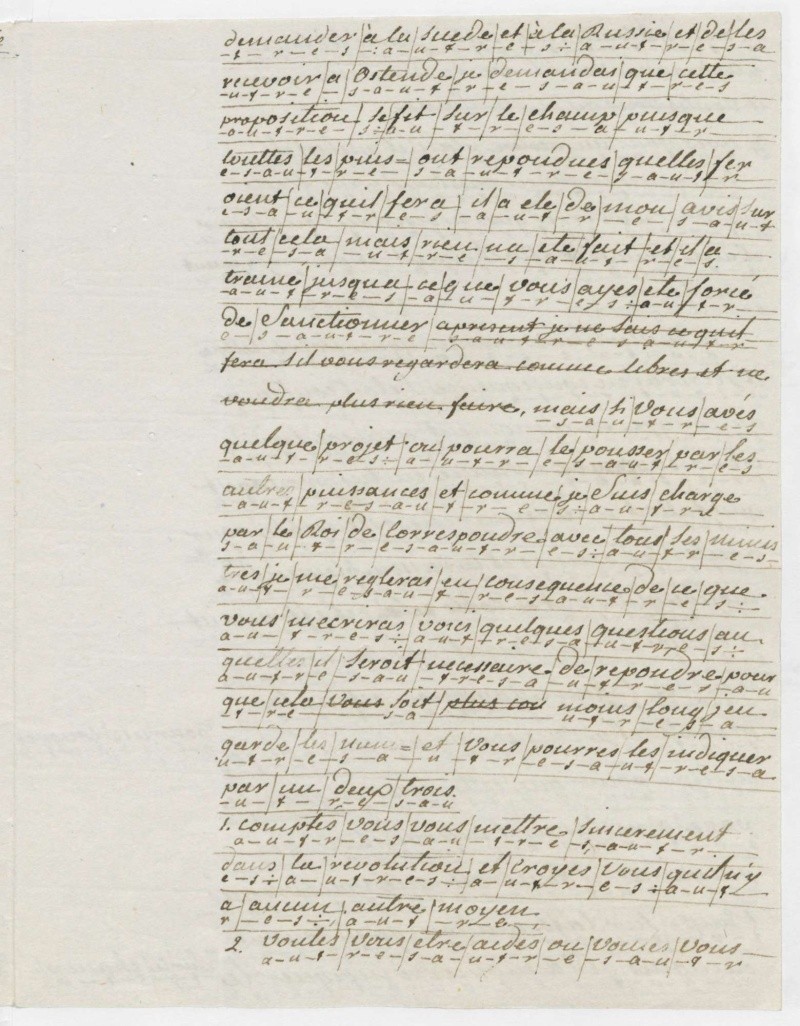 demander à la Suede et à la Russie et de les
recevoir a Ostende je demandai que cette
proposition se fit sur le champ puisque
touttes les puis= ont repondues quelles fer
oient ce quil fera il a ete de mon avis sur
tout cela mais rien na ete fait et il a
trainé jusqua ce que vous ayes ete forcé
de Sanctionner apresent je ne sais ce quil
fera sil vous regardera comme libres et ne
voudra plus rien faire, mais si vous avés
quelque projet on pourra le pousser par les
autres puissances et comme je suis charge
par le Roi de Correspondre avec tous ses minis
tres je me reglerai en consequence de ce que
vous mecrirais voici quelques questions au
quelles il seroit necessaire de repondre pour
que cela vous soit plus moins long jen
garde les num= et vous pourres les indiquer
par un deux trois.
1. comptés vous vous mettre sincerement
dans la revolution et croyes vous quil n'y
a aucun autre moyen
2. voules vous etre aidés ou voules vous